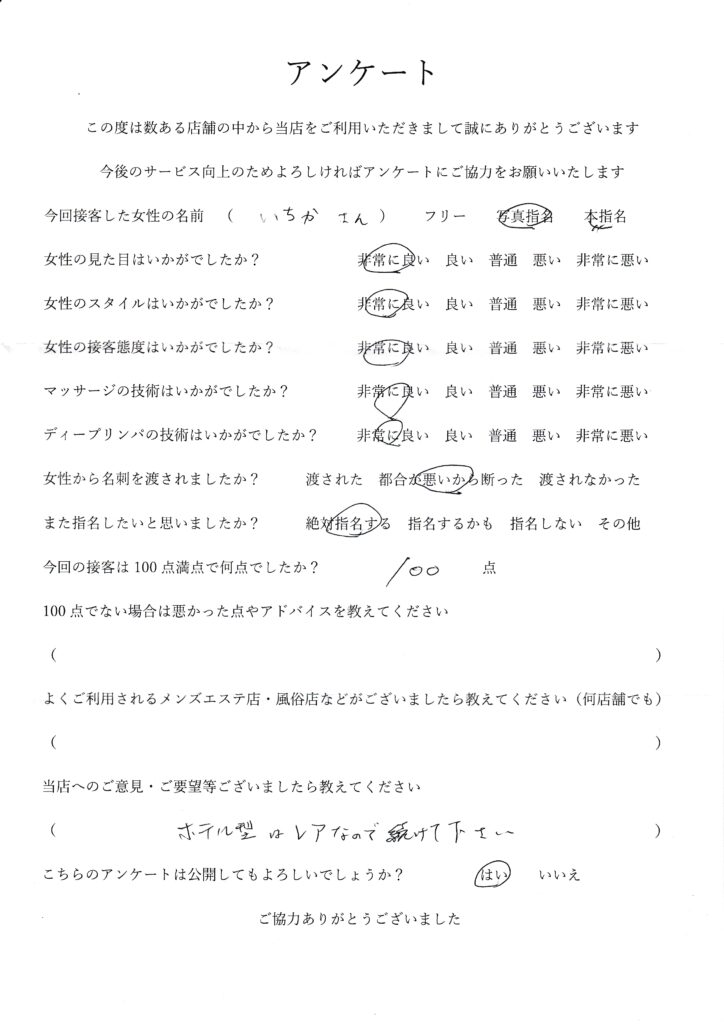 アンケート
この度は数ある店舗の中から当店をご利用いただきまして誠にありがとうございます
今後のサービス向上のためよろしければアンケートにご協力をお願いいたします
今回接客した女性の名前 ( いちか さん ) フリー 写真指名 本指名
女性の見た目はいかがでしたか? 非常に良い 良い 普通 悪い 非常に悪い
女性のスタイルはいかがでしたか? 非常に良い 良い 普通 悪い 非常に悪い
女性の接客態度はいかがでしたか? 非常に良い 良い 普通 悪い 非常に悪い
マッサージの技術はいかがでしたか? 非常に良い 良い 普通 悪い 非常に悪い
ディープリンパの技術はいかがでしたか? 非常に良い 良い 普通 悪い 非常に悪い
女性から名刺を渡されましたか? 渡された 都合が悪いから断った 渡されなかった
また指名したいと思いましたか? 絶対指名する 指名するかも 指名しない その他
今回の接客は100点満点で何点でしたか? 100 点
100点でない場合は悪かった点やアドバイスを教えてください
( )
よくご利用されるメンズエステ店・風俗店などがございましたら教えてください(何店舗でも)
( )
当店へのご意見・ご要望等ございましたら教えてください
( ホテル型はレアなので続けて下さい )
こちらのアンケートは公開してもよろしいでしょうか? はい いいえ
ご協力ありがとうございました